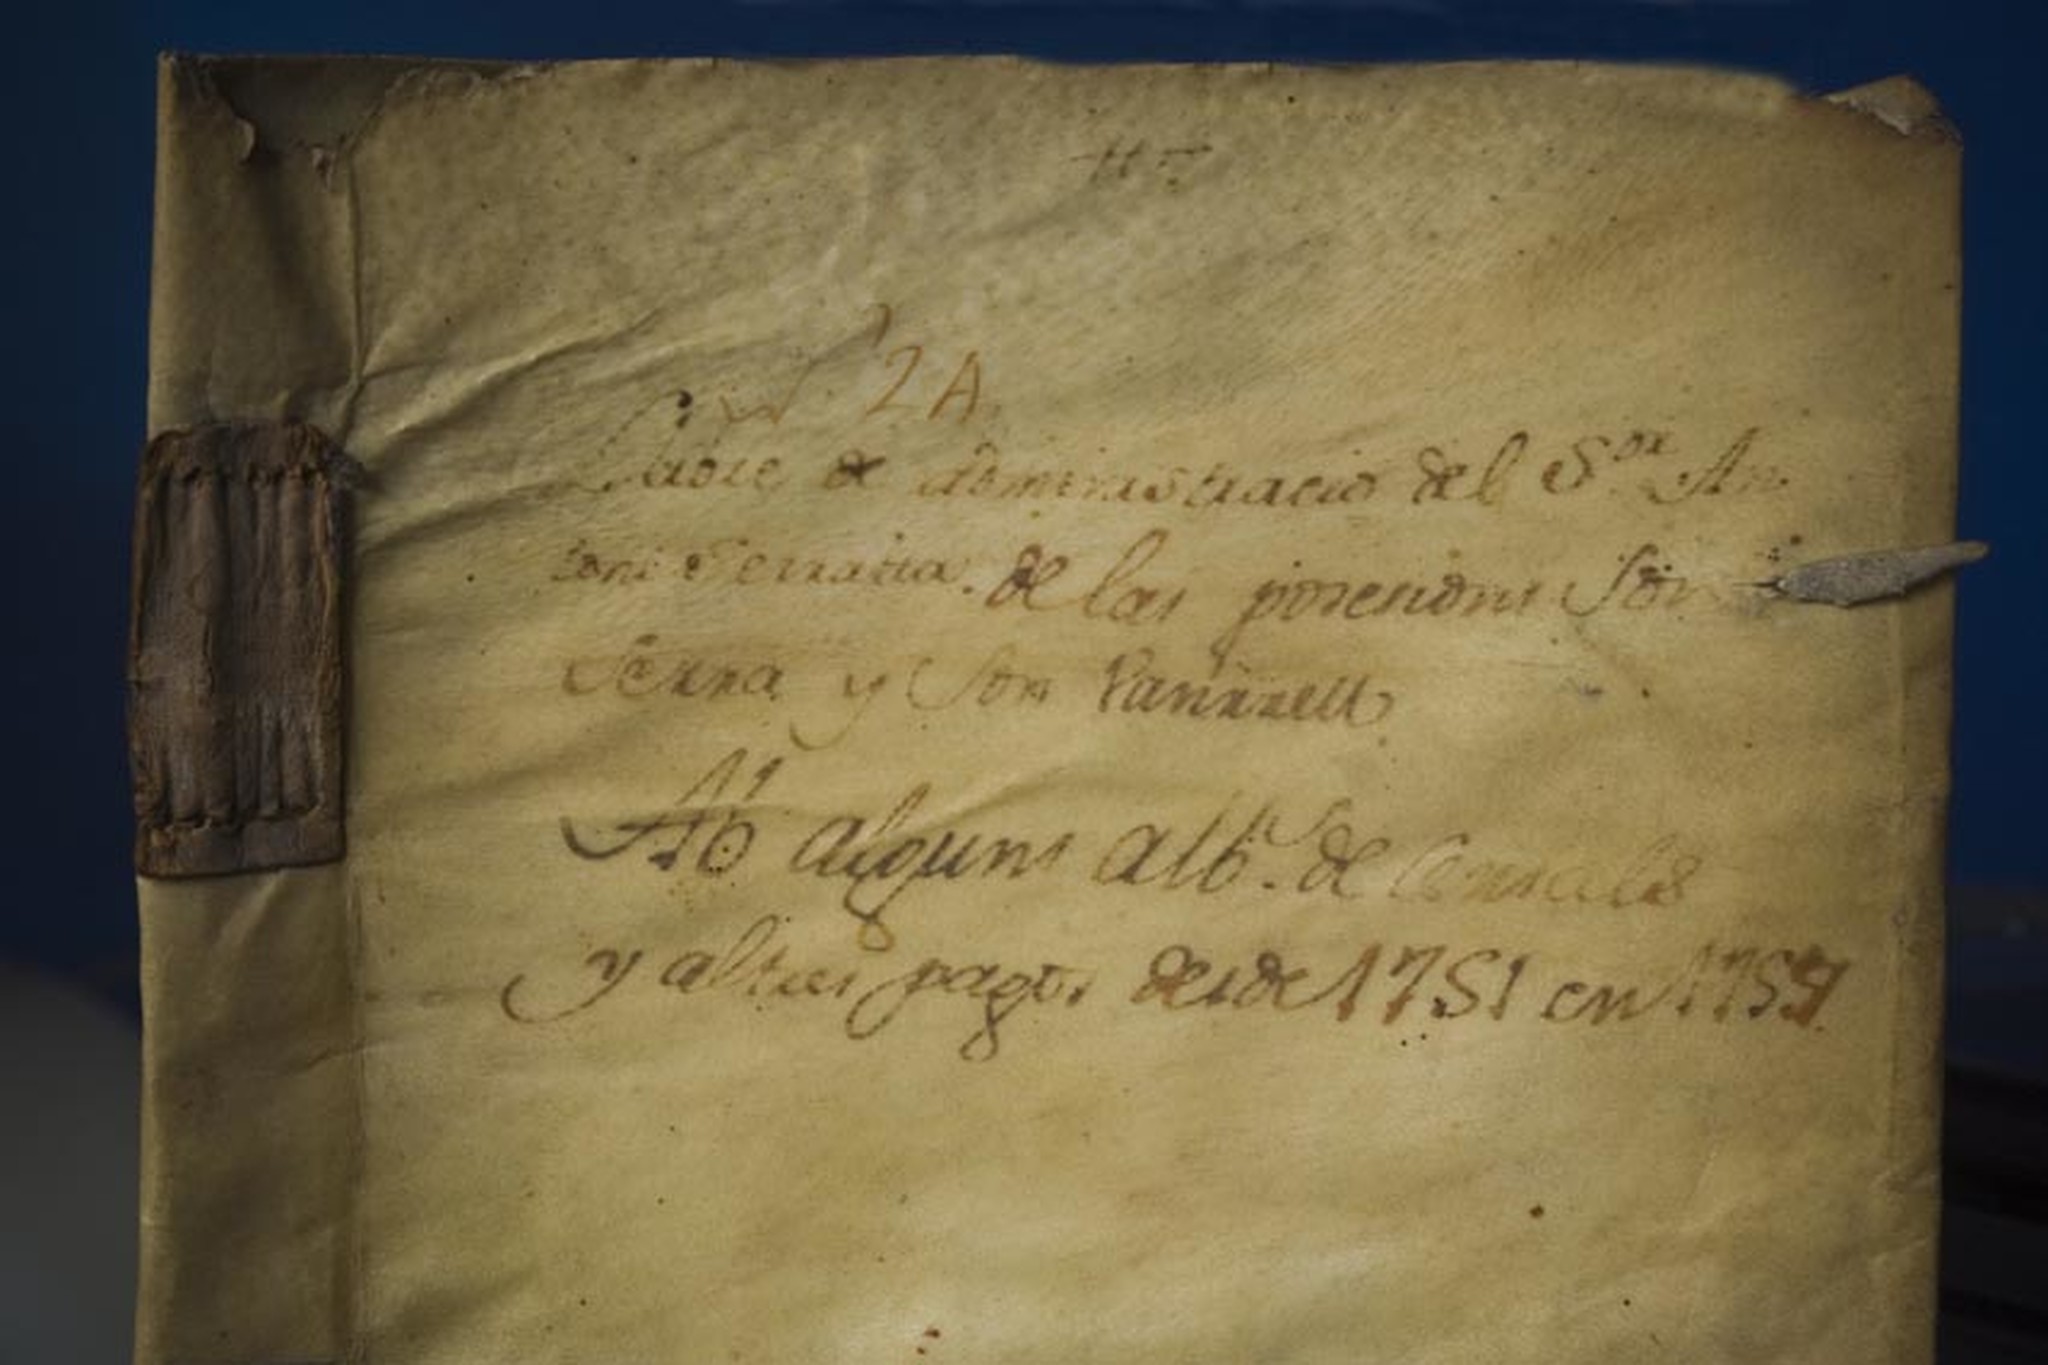 2 A
Llibre de administracio del S.or An-
toni Serralta. de las poresions Son
Serra y Son Vanrrell
Ab alguns alb.s de Censals
y altres pagos desde 1751 en 1757